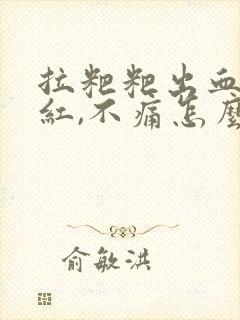 拉粑粑出血
紅,不痛怎麼
俞敏洪